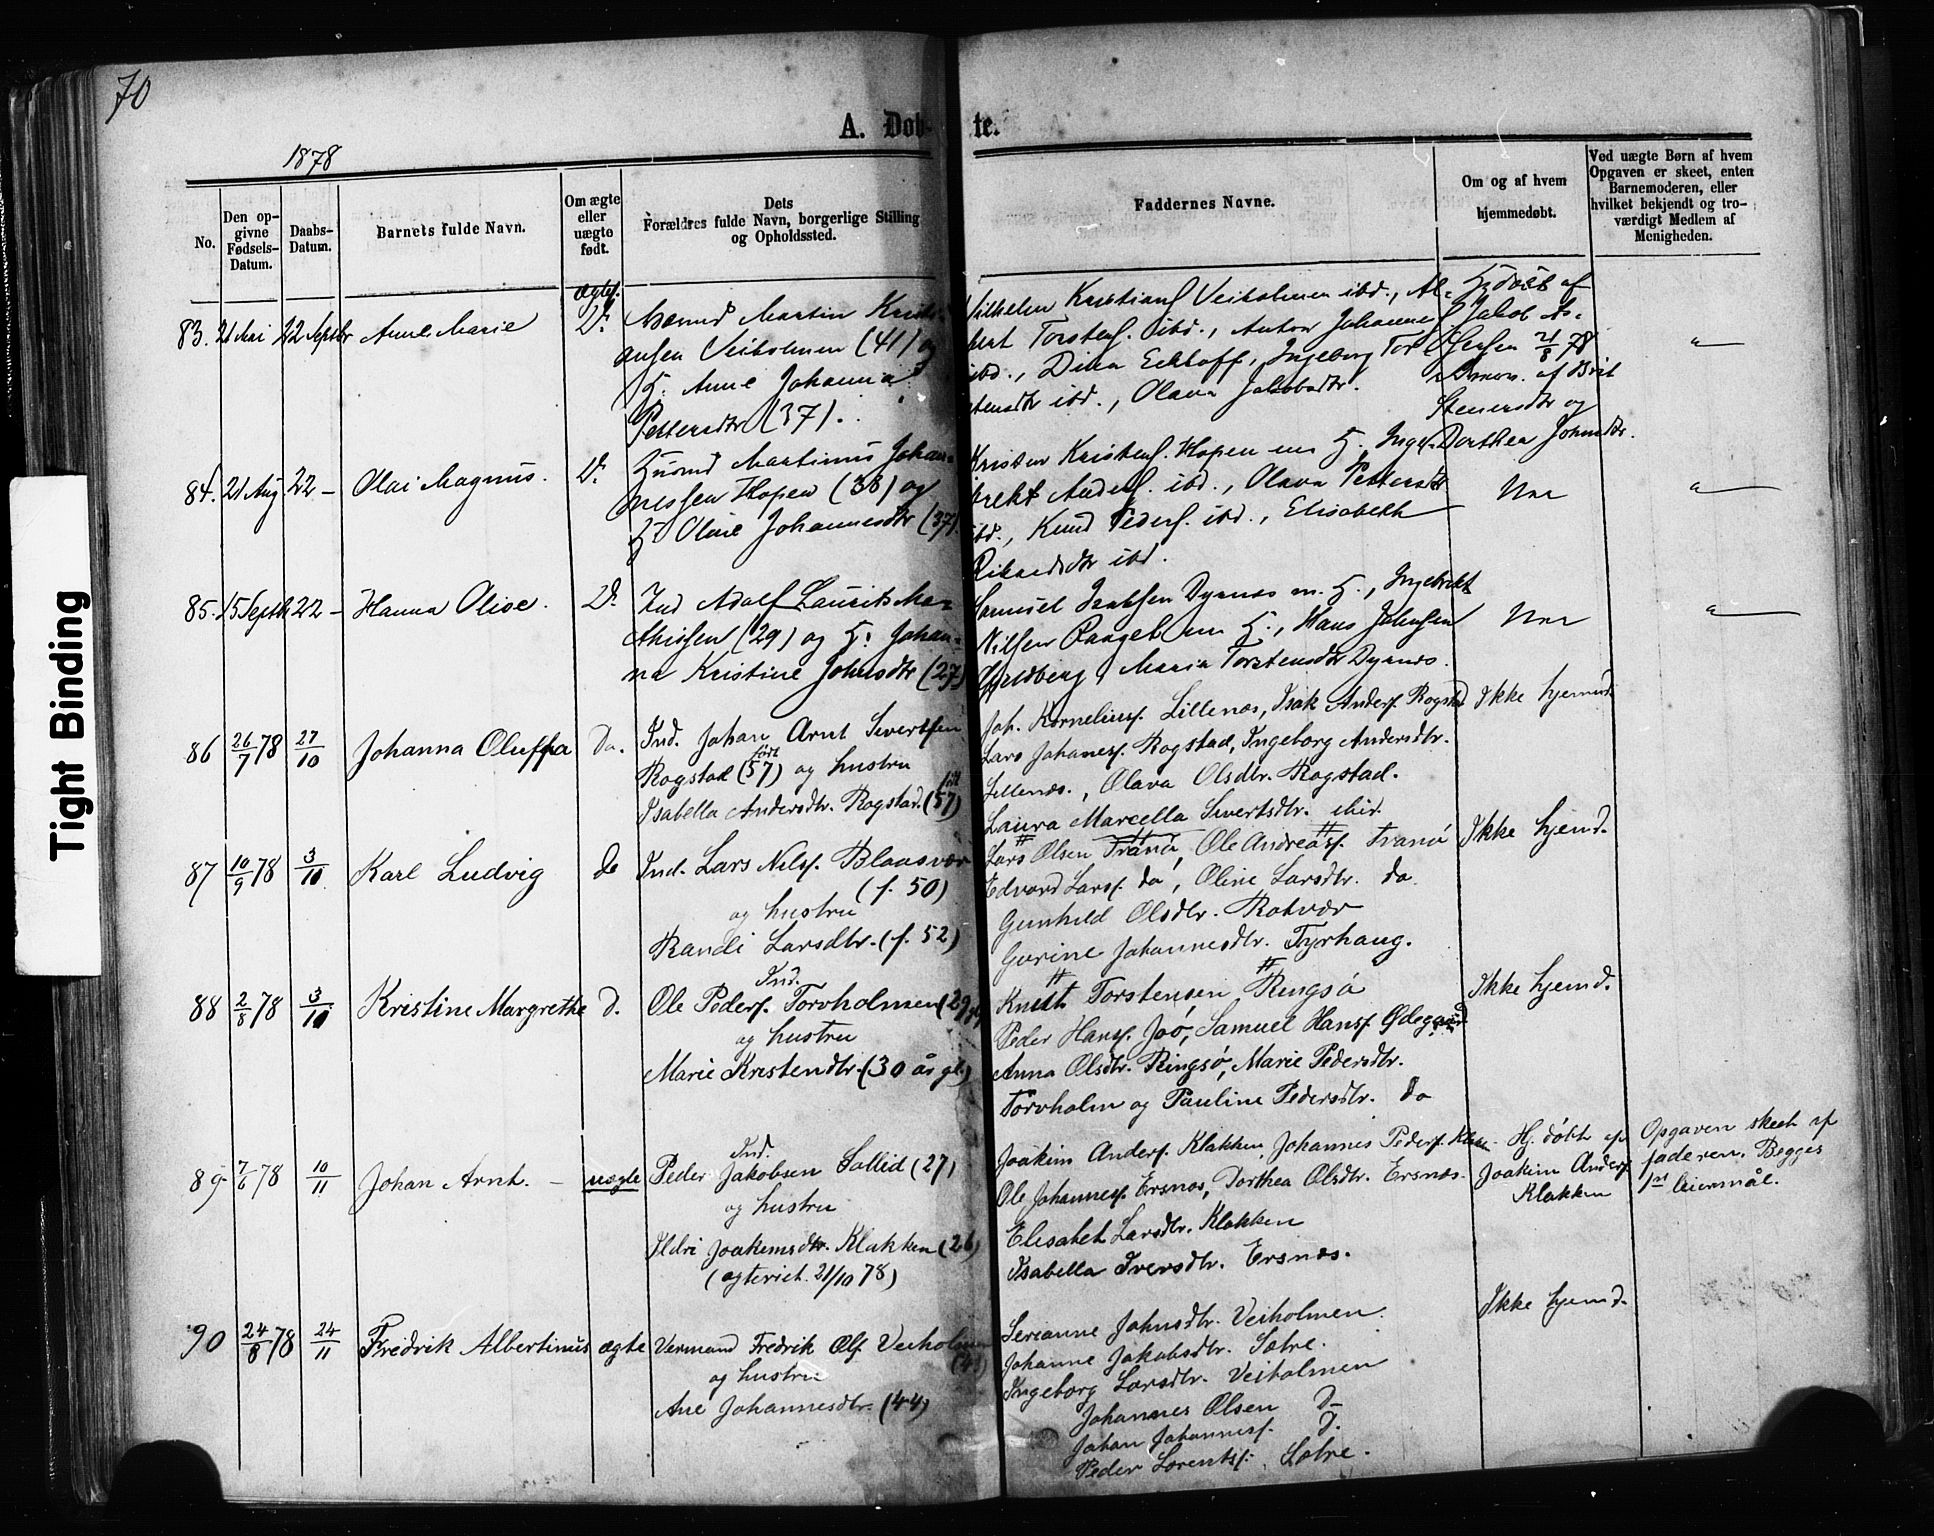 70
A. Døb- te.
1878
No.
Den op-
givne
Fødsels-
Datum.
Daabs-
Datum.
Barnets fulde Navn.
Om ægte
eller
uægte
født.
Dets
Forældres fulde Navn, borgerlige Stilling
og Opholdssted.
Faddernes Navne.
Om og af hvem
hjemmedøbt.
Ved uægte Børn af hvem
Opgaven er skeet, enten
Barnemoderen, eller
hvilket bekjendt og tro-
værdigt Medlem af
Menigheden.
83. 21 Mai 22 Septbr Anne Marie ægtef. D.
Martin Krist-
ansen Veiholmen (41) og
H. Anne Johanna
Pettersdtr (37).
Vilhelm Kristians. Veiholmen ibd., Al-
bert Torstens. ibd., Anton Johannes.
ibd., Dina Eckhoff, Ingeborg Tor-
stensdtr ibd., Olava Jakobsdtr.
Hj døbt af
Jakob As-
21/8 78
af Brit
Stenersdtr og
Dorthea Johnsdtr.
84. 21 Aug 22 – Olai Magnus. D.
Husmd Martinus Johan-
nessen Hopen (38) og
H Oline Johannesdtr (37).
Kristen Kristens. Hopen m H., Inge-
brekt Anders. ibd., Olava Pettersdtr
ibd., Knud Peders. ibd., Elisabeth
Rikardsdtr ibd.
Nei
85. 15 Septbr 22 – Hanna Olise. D.
Ind Adolf Laurits Ma-
thissen (29) og H. Johan-
na Kristine Johnsdtr (27)
Samuel Isaksen Dyrnes m. H., Ingebrikt
Nilsen m H., Hans Johnsen
Maria Torstensdtr Dyrnes.
Nei
86 26/7 78 27/10 Johanna Oluffa Do.
Ind. Johan Arnt Sivertsen
Rogstad (født 57) og hustru
Isabella Andersdtr. Rogstad. (født 57)
Joh. Kornelius. Lillenes, Isak Anders. Rogstad
Lars Johanes. Rogstad, Ingeborg Andersdtr.
Lillenes., Olava Olsdtr. Rogstad.
Laura Marcella Sivertsdtr. ibid.
Ikke hjemd.
87 10/9 78 3/10 Karl Ludvig do
Ind. Lars Nils. Blaasvær
(f. 50)
og hustru
Randi Larsdtr. (f. 52)
Lars Olsen Tranø, Ole Andreas. Tranø
Edvard Lars. do, Oline Larsdtr. do
Gunhild Olsdtr. Rotvær
Gurine Johannesdtr. Tyrhaug.
Ikke hjemd.
88 2/8 78 3/10 Kristine Margrethe d.
Ind.
Ole Peders. Torvholmen (29
og hustru
Marie Kristendtr. (30 år gl.)
Knut Torstensen Ringsø
Peder Hans. Joø, Samuel Hans. Ødegård
Anna Olsdtr. Ringsø, Marie Pedersdtr.
Torvholm og Pauline Pedersdtr. do
Ikke hjemd.
89 7/6 78 10/11 Johan Arnt. – uægte
Ind.
Peder Jakobsen Sollid (27)
og hustru
Ildri Joakimsdtr. Klakken (26)
(ægteviet. 21/10 78)
Joakim Anders. Klakken, Johannes Peders. Klak-
Ole Johannes. Ersnes, Dorthea Olsdtr. Ersnes.
Elisabet Larsdtr. Klakken
Isabella Iversdtr. Ersnæs.
Hj. døbt af
Joakim Anders.
Klakken
Opgaven skeet af
faderen. Begges
1ste leiermål.
90 24/8 78 24/11 Fredrik Albertinus ægte
Vermund Fredrik Ols. Veiholmen
(41)
og hustru
Ane Johannesdtr. (44)
Serianne Johnsdtr. Veiholmen.
Johanne Jakobsdtr. Sætre.
Ingeborg Larsdtr. Veiholmen
Johannes Olsen D–
Johan Johannes. D.
Peder Lorents. Sætre.
Ikke hjemd.
Tight Binding